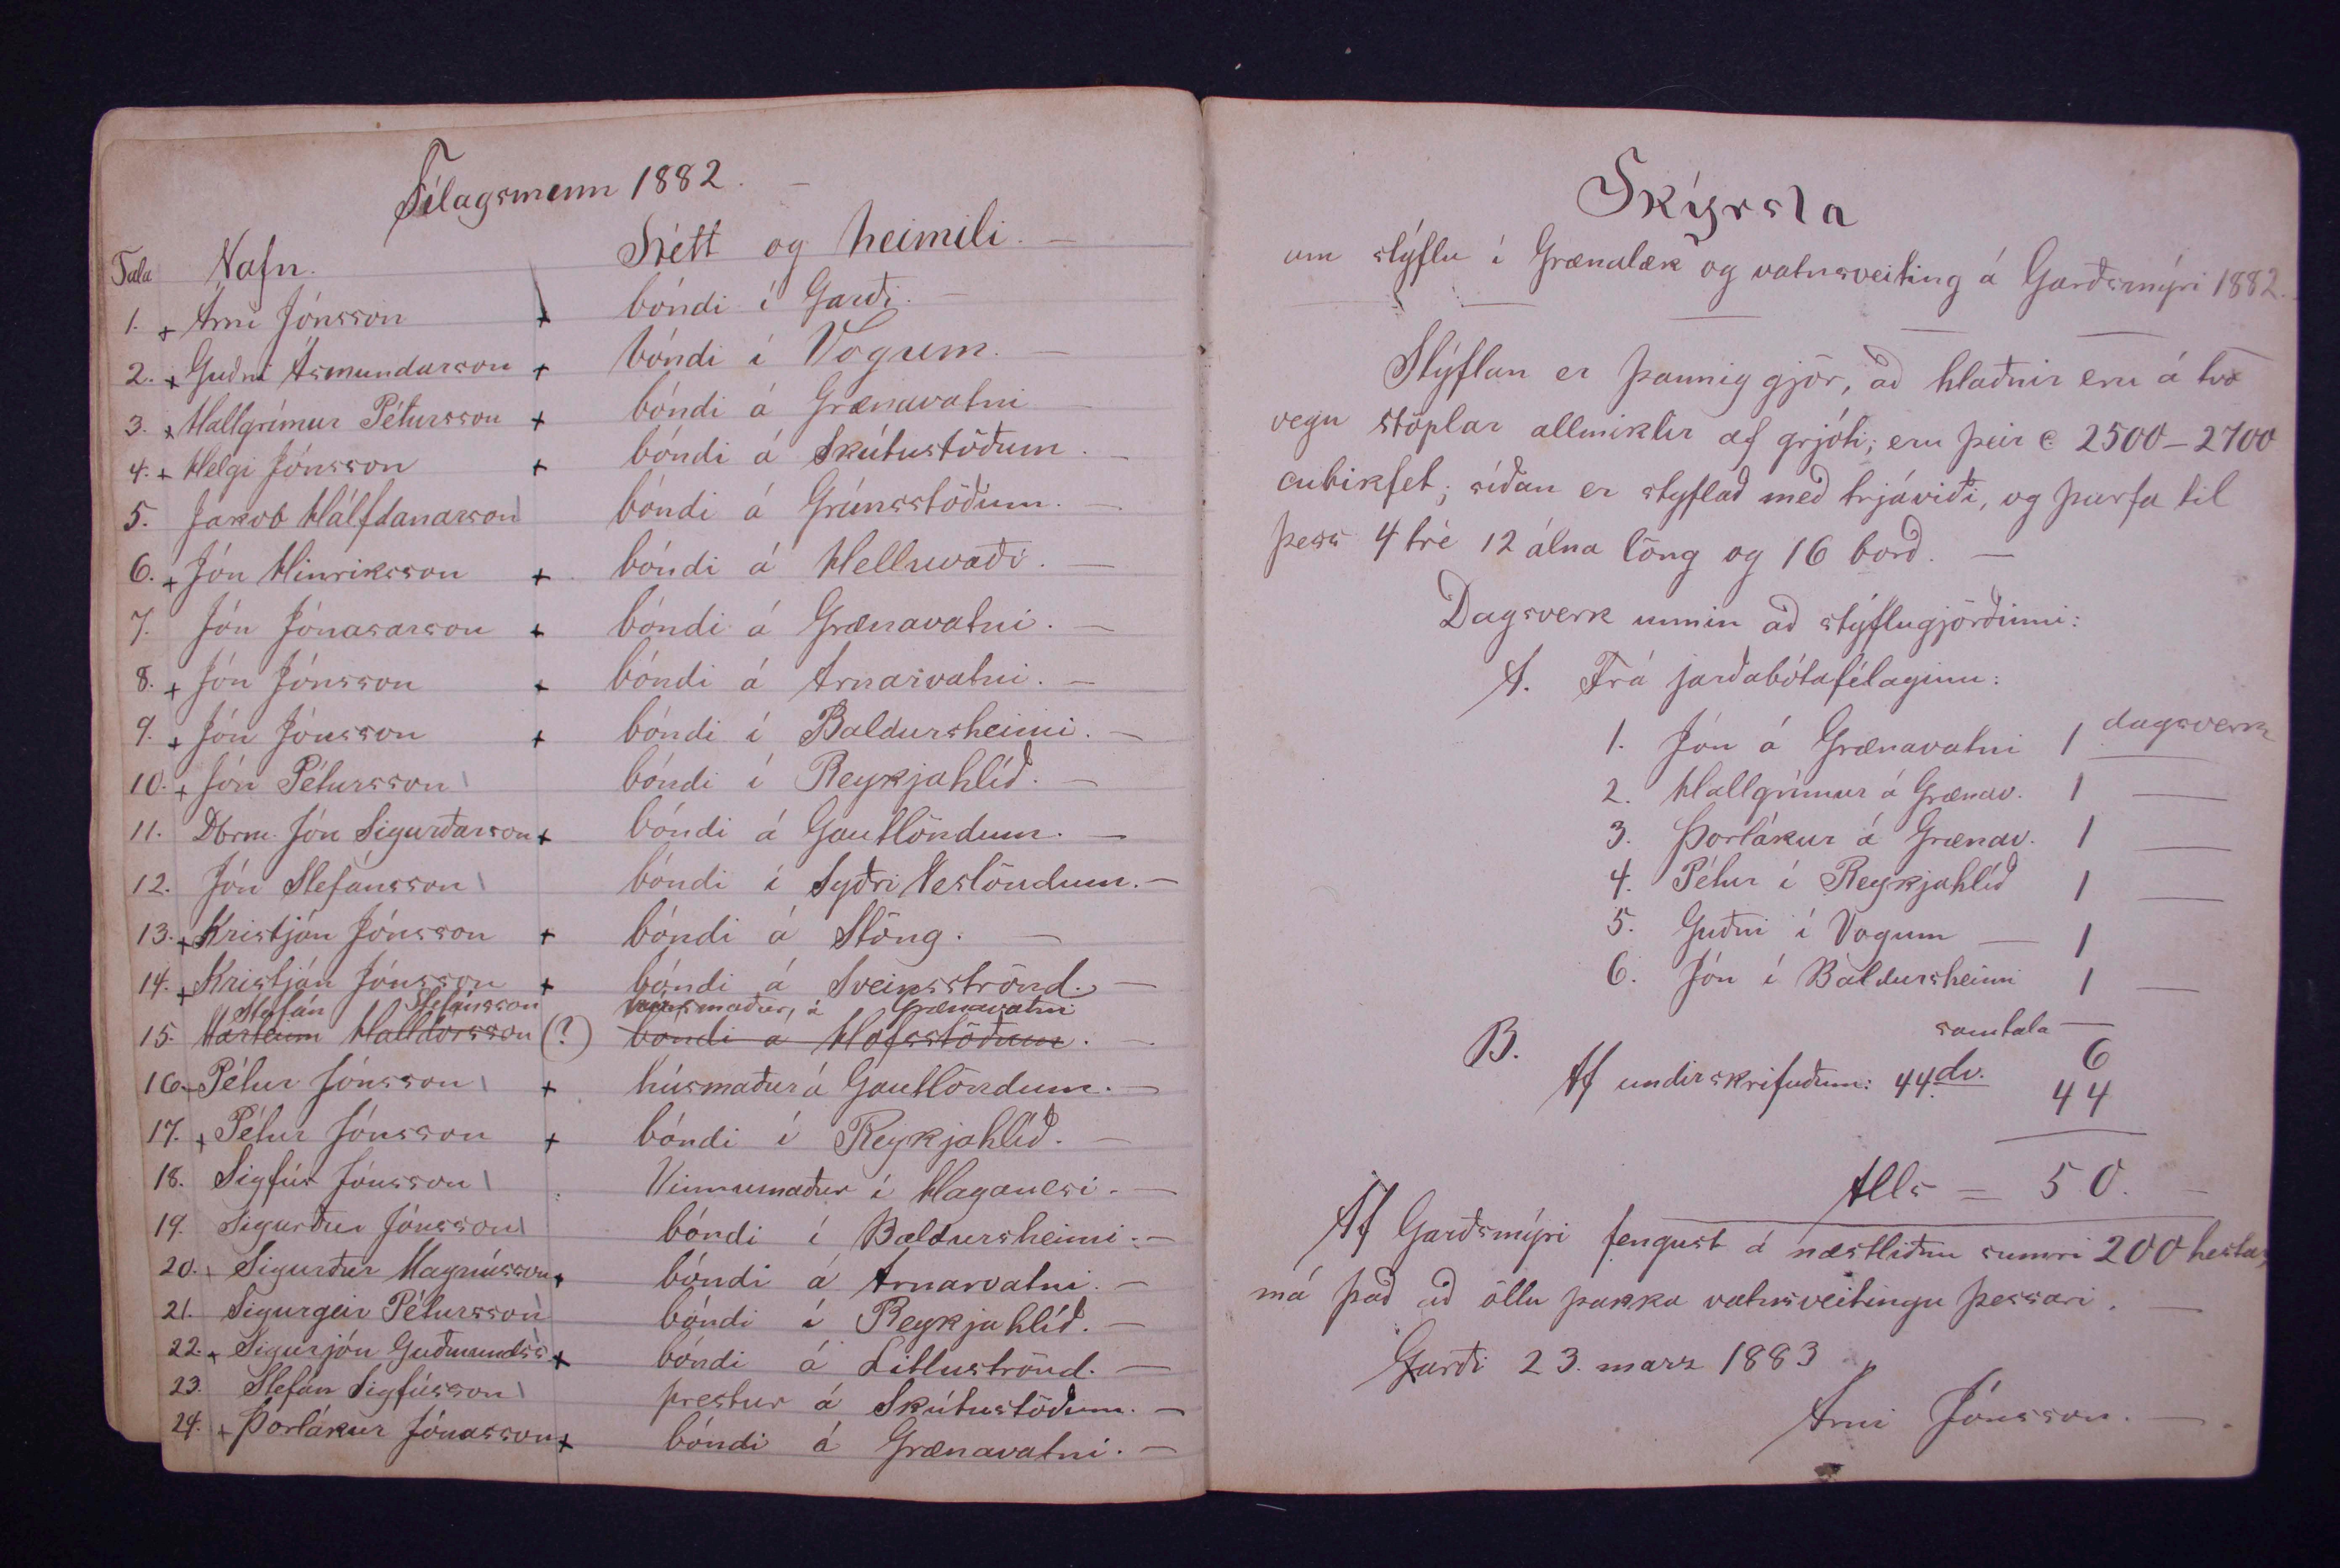 Félagsmenn 1882. –
Tala Nafn. Stétt og heimili. –
1. + Árni Jónsson + bóndi í Garði. –
2. + Guðni Ásmundarson + bóndi í Vogum. –
3. + Hallgrímur Pétursson + bóndi á Grænavatni –
4. + Helgi Jónsson + bóndi á Skútustöðum. –
5. Jakob Hálfdanarson bóndi á Grímsstöðum. –
6. + Jón Hinriksson + bóndi á Helluvaði. –
7. Jón Jónasarson + bóndi á Grænavatni. –
8. + Jón Jónsson + bóndi á Arnarvatni. –
9. + Jón Jónsson + bóndi í Baldursheimi. –
10. + Jón Pétursson bóndi í Reykjahlíð. –
11. Dbrm. Jón Sigurðarson + bóndi á Gautlöndum. –
12. Jón Stefánsson bóndi í Syðri Neslöndum. –
13. + Kristján Jónsson + bóndi á Stöng. –
14. + Kristján Jónsson + bóndi á Sveinsströnd. –
Stefán Stefánsson húsmaður, á Grænavatni
15. Marteinn Halldórsson (?) bóndi á Hofsstöðum. –
16. Pétur Jónsson + húsmaður á Gautlöndum. –
17. + Pétur Jónsson + bóndi í Reykjahlíð. –
18. Sigfús Jónsson Vinnumaður í Haganesi. –
19. Sigurður Jónsson bóndi í Baldursheimi. –
20. Sigurður Magnússon + bóndi á Arnarvatni. –
21. Sigurgeir Pétursson bóndi í Reykjahlíð. –
22. + Sigurjón Guðmundss. + bóndi á Litluströnd. –
23. Stefán Sigfússon prestur á Skútustöðum. –
24. + Þorlákur Jónasson + bóndi á Grænavatni. –
Skýrsla
um stýflu í Grænalæk og vatnsveiting á Garðsmýri 1882.
Stýflan er þannig gjör, að hlaðnir eru á tvo
vegu stöplar allmiklir af grjóti; eru þeir c 2500–2700
cubikfet; síðan er styflað með trjáviði, og þurfa til
þess 4 tré 12 álna löng og 16 borð. –
Dagsverk unnin að stýflugjörðinni:
A. Frá jarðabótafélaginu:
1. Jón á Grænavatni 1 dagsverk
2. Hallgrímur á Grænav. 1 —
3. Þorlákur á Grænav. 1 —
4. Pétur í Reykjahlíð 1 —
5. Guðni í Vogum – 1
6. Jón í Baldursheimi 1 —
samtala — 6
B. Af undirskrifuðum: 44 dv. 44
Alls = 50. –
Af Garðsmýri fengust á næstliðnu sumri 200 hestar,
má það að öllu þakka vatnsveitingu þessari. –
Garði 23. marz 1883
Árni Jónsson. –